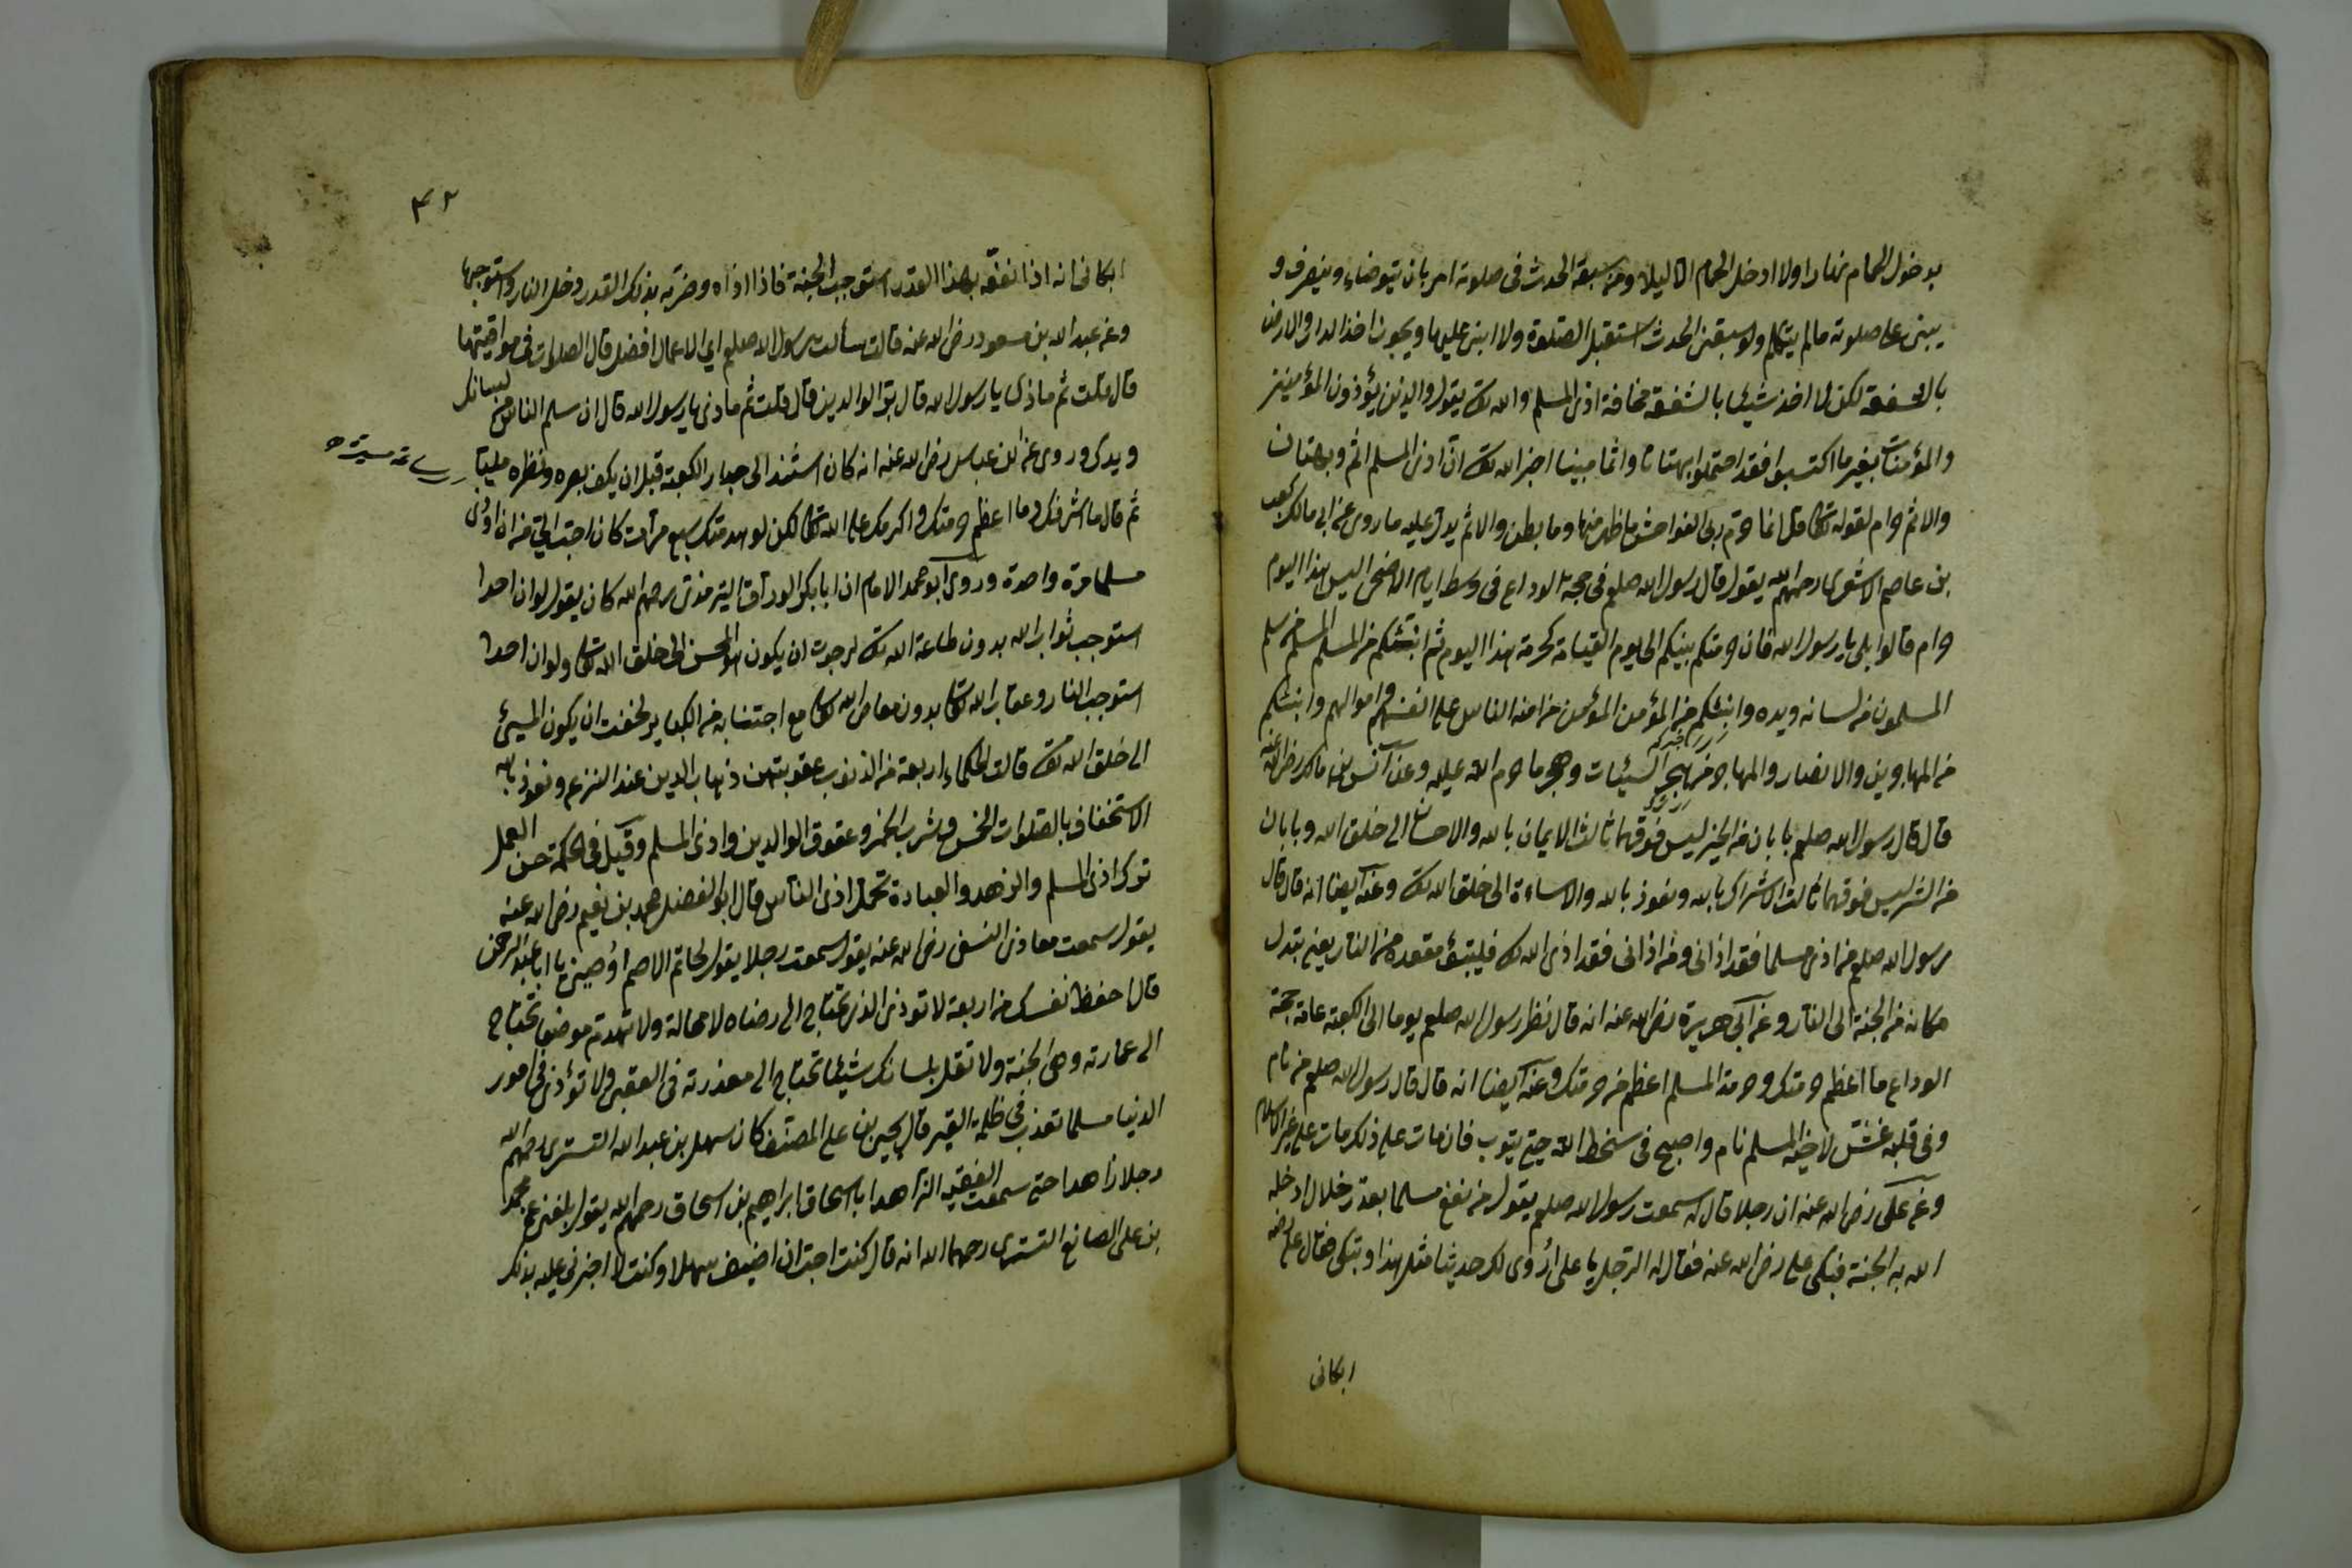 بدخول الحمام نهارا ولا ادخل الحمام الا ليلا ومن سبقه الحدث فى صلوته امر بان يتوضاء وينصرف و
يبنى على صلوته مالم يتكلم ولو سبقنى الحدث استقبل الصلوة ولا ابنى عليها ويجوز اخذ
بالشفعة لكن لا اخذ شيئا بالشفعة مخافة اذى المسلم والله تعالى يقول والذين يؤذون المؤمنين
والمؤمنات بغير ما اكتسبوا فقد احتملوا بهتانا واثما مبينا اخبر الله تعالى ان اذى المسلم اثم وبهتان
والاثم حرام لقوله تعالى قل انما حرم ربى الفواحش ما ظهر منها وما بطن والاثم يدل عليه ما روى عن ابى مالك كعب
بن عاصم الاشعرى رحمهم الله يقول قال رسول الله صلعم فى حجة الوداع فى وسط ايام الاضحى اليس هذا اليوم
حرام قالوا بلى يا رسول الله قال فان حرمتكم بينكم الى يوم القيامة كحرمة هذا اليوم ثم انبئكم من المسلم المسلم من سلم
المسلمون من لسانه ويده وانبئكم من المؤمن المؤمن من امنه الناس على انفسهم واموالهم وانبئكم
من المهاجرين والانصار والمهاجر من هجر السيئات وهجر ما حرم الله عليه وعن انس بن مالك رضى الله عنه
قال قال رسول الله صلعم بابان من الخير ليس فوقهما ثالث الايمان بالله والاحسان الى خلق الله وبابان
من الشر ليس فوقهما ثالث الاشراك بالله ونعوذ بالله والاساءة الى خلق الله تعالى وعنه ايضا انه قال قال
رسول الله صلعم من اذى مسلما فقد اذانى ومن اذانى فقد اذى الله تعالى فليتبوء مقعده من النار يعنى بتدل
مكانه من الجنة الى النار وعن ابى هريرة رضى الله عنه انه قال نظر رسول الله صلعم يوما الى الكعبة عام حجة
الوداع ما اعظم حرمتك وحرمة المسلم اعظم من حرمتك وعنه ايضا انه قال قال رسول الله صلعم من نام
وفى قلبه غش لاخيه المسلم نام واصبح فى سخط الله حتى يتوب فان مات على ذلك مات على غير الاسلام
وعن على رضى الله عنه ان رجلا قال له سمعت رسول الله صلعم يقول من نفع مسلما بعذر خلال ادخله
الله به الجنة فبكى على رضى الله عنه فقال له الرجل يا على اروى لك حديثا مثل هذا وتبكى فقال على رضه
ابكانى
٤٢
ابكانى انه اذا نفعه بهذا القدر استوجب الجنة فاذا اذاه وضربه بذلك القدر دخل النار واستوجبها
وعن عبد الله بن مسعود رضى الله عنه قالت سألت رسول الله صلعم اي الاعمال افضل قال الصلوات فى مواقيتها
قال قلت ثم ماذى يا رسول الله قال بر الوالدين قال قلت ثم ماذى يا رسول الله قال ان سلم الناس من لسانك
ويدك وروى عن ابن عباس رضى الله عنه انه كان استند الى جدار الكعبة قبل ان يكف بصره ونظره مليا
ثم قال ما اشرفك وما اعظم حرمتك واكرمك على الله تعالى لكن لو هدمتك سبع مرات كان احب الى من ان اوذى
مسلما مرة واحدة وروى ابو محمد الامام ان ابا بكر الوراق الترمذى رحمهم الله كان يقول لو ان احدا
استوجب ثواب الله بدون طاعة الله تعالى لرجوت ان يكون هو المحسن الى خلق الله تعالى ولو ان احدا
استوجب النار وعقاب الله تعالى بدون معاصى الله تعالى مع اجتنابه من الكبائر لخفت ان يكون المسيئ
الى خلق الله تعالى قالت الحكماء اربعة من الذنوب عقوبتهن ذهاب الدين عند النزع ونعوذ بالله
الاستخفاف بالصلوات الخمس وشرب الخمر وعقوق الوالدين واذى المسلم وقيل فى الحكمة حسن العمل
ترك اذى المسلم والزهد والعبادة تحمل اذى الناس قال ابو الفضل محمد بن نعيم رضى الله عنه
يقول سمعت معاذ النسفى رضى الله عنه يقول سمعت رجلا يقول لحاتم الاصم اوصينى يا ابا عبد الرحمن
قال احفظ نفسك من اربعة لا توذى الذى تحتاج الى رضاه لا محالة ولا تهدم موضعا تحتاج
الى عمارته وهى الجنة ولا تقل بلسانك شيئا تحتاج الى معذرته فى العقبى ولا تؤذى فى امور
الدنيا مسلما تعذب فى ظلمة القبر قال يحيى بن على المصنف كان سهل بن عبد الله التسترى رحمهم الله
رجلا زاهدا حتى سمعت الفقيه الزاهد ابا اسحاق ابراهيم بن اسحاق رحمهم الله يقول بلغنى عن محمد
بن على الصانع التسترى رحمهما الله انه قال كنت احب ان اضيف سهلا وكنت لا اجترئ عليه بذلك